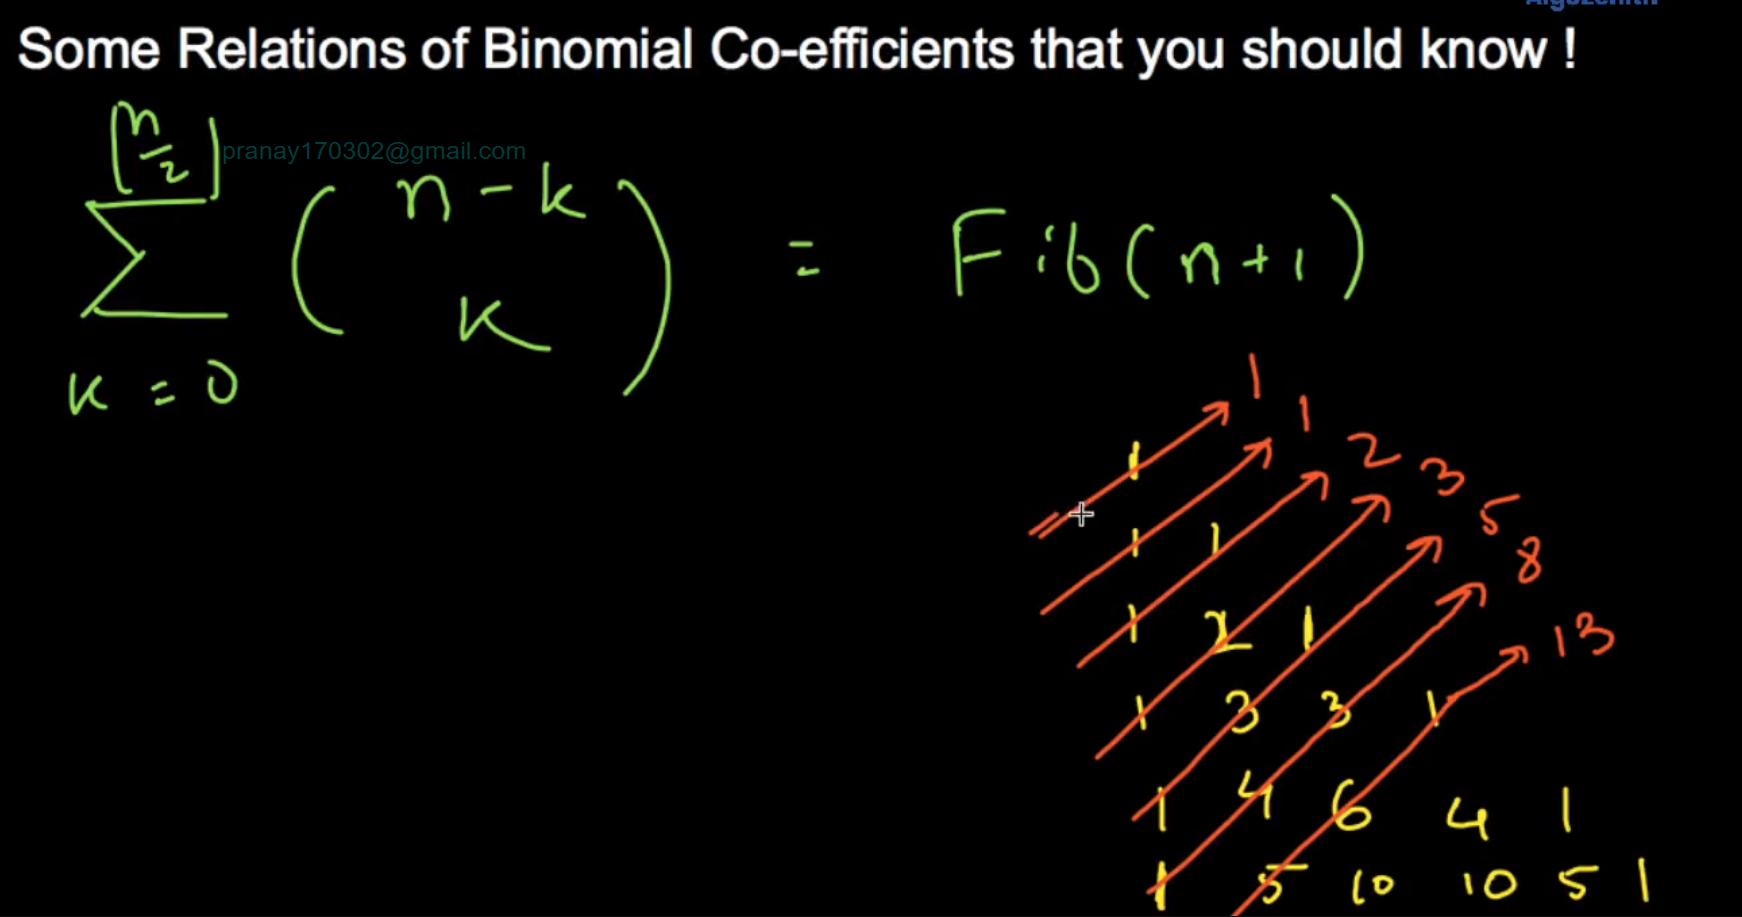 Algozenith
Some Relations of Binomial Co-efficients that you should know !
pranay170302@gmail.com
⌊n/2⌋
∑ (n-k k) = Fib(n+1)
k = 0
1
1
2
3
5
8
13
1
1 1
1 2 1
1 3 3 1
1 4 6 4 1
1 5 10 10 5 1